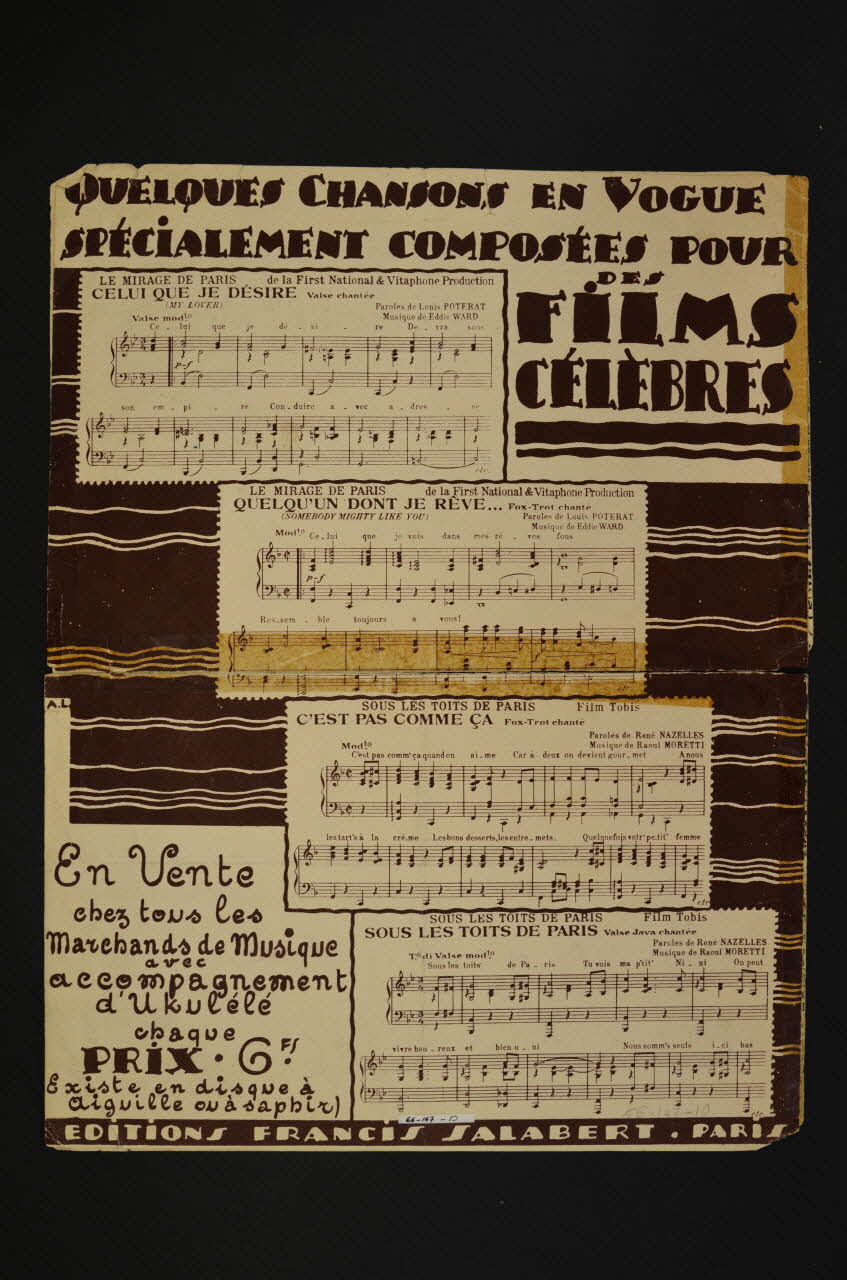 QUELQUES CHANSONS EN VOGUE
SPÉCIALEMENT COMPOSÉES POUR
DES
FILMS
CÉLÈBRES
LE MIRAGE DE PARIS de la First National & Vitaphone Production
CELUI QUE JE DÉSIRE Valse chantée
(MY LOVER)
Paroles de Louis POTERAT
Musique de Eddie WARD
Valse modto
Ce - lui que je dé - si - re De - vra sous
p-f
son em - pi - re Con - duire a - vec a - dres - se
etc.
LE MIRAGE DE PARIS de la First National & Vitaphone Production
QUELQU'UN DONT JE RÊVE... Fox-Trot chanté
(SOMEBODY MIGHTY LIKE YOU)
Paroles de Louis POTERAT
Musique de Eddie WARD
Modto
Ce - lui que je vois dans mes rê - ves fous
p-f
Res - sem - ble toujours à vous!
etc.
A.L.
SOUS LES TOITS DE PARIS Film Tobis
C'EST PAS COMME ÇA Fox-Trot chanté
Paroles de René NAZELLES
Musique de Raoul MORETTI
Modto
C'est pas comm' ça quand on ai - me Car à deux on devient gour - met A nous
les tart's à la crè - me Les bons desserts, les entre - mets. Quelquefois votr' pe - tit' femme
etc
SOUS LES TOITS DE PARIS Film Tobis
SOUS LES TOITS DE PARIS Valse Java chantée
Paroles de René NAZELLES
Musique de Raoul MORETTI
To di Valse modto
Sous les toits de Pa - ris Tu vois ma p'tit' Ni - ni On peut
vivre heu - reux et bien u - ni Nous somm's seuls i - ci bas
etc.
En Vente
chez tous les
Marchands de Musique
avec
accompagnement
d'Ukulélé
chaque
PRIX · 6 Fs
Existe en disque à
aiguille ou à saphir)
66-147-10
EDITIONS FRANCIS SALABERT . PARIS